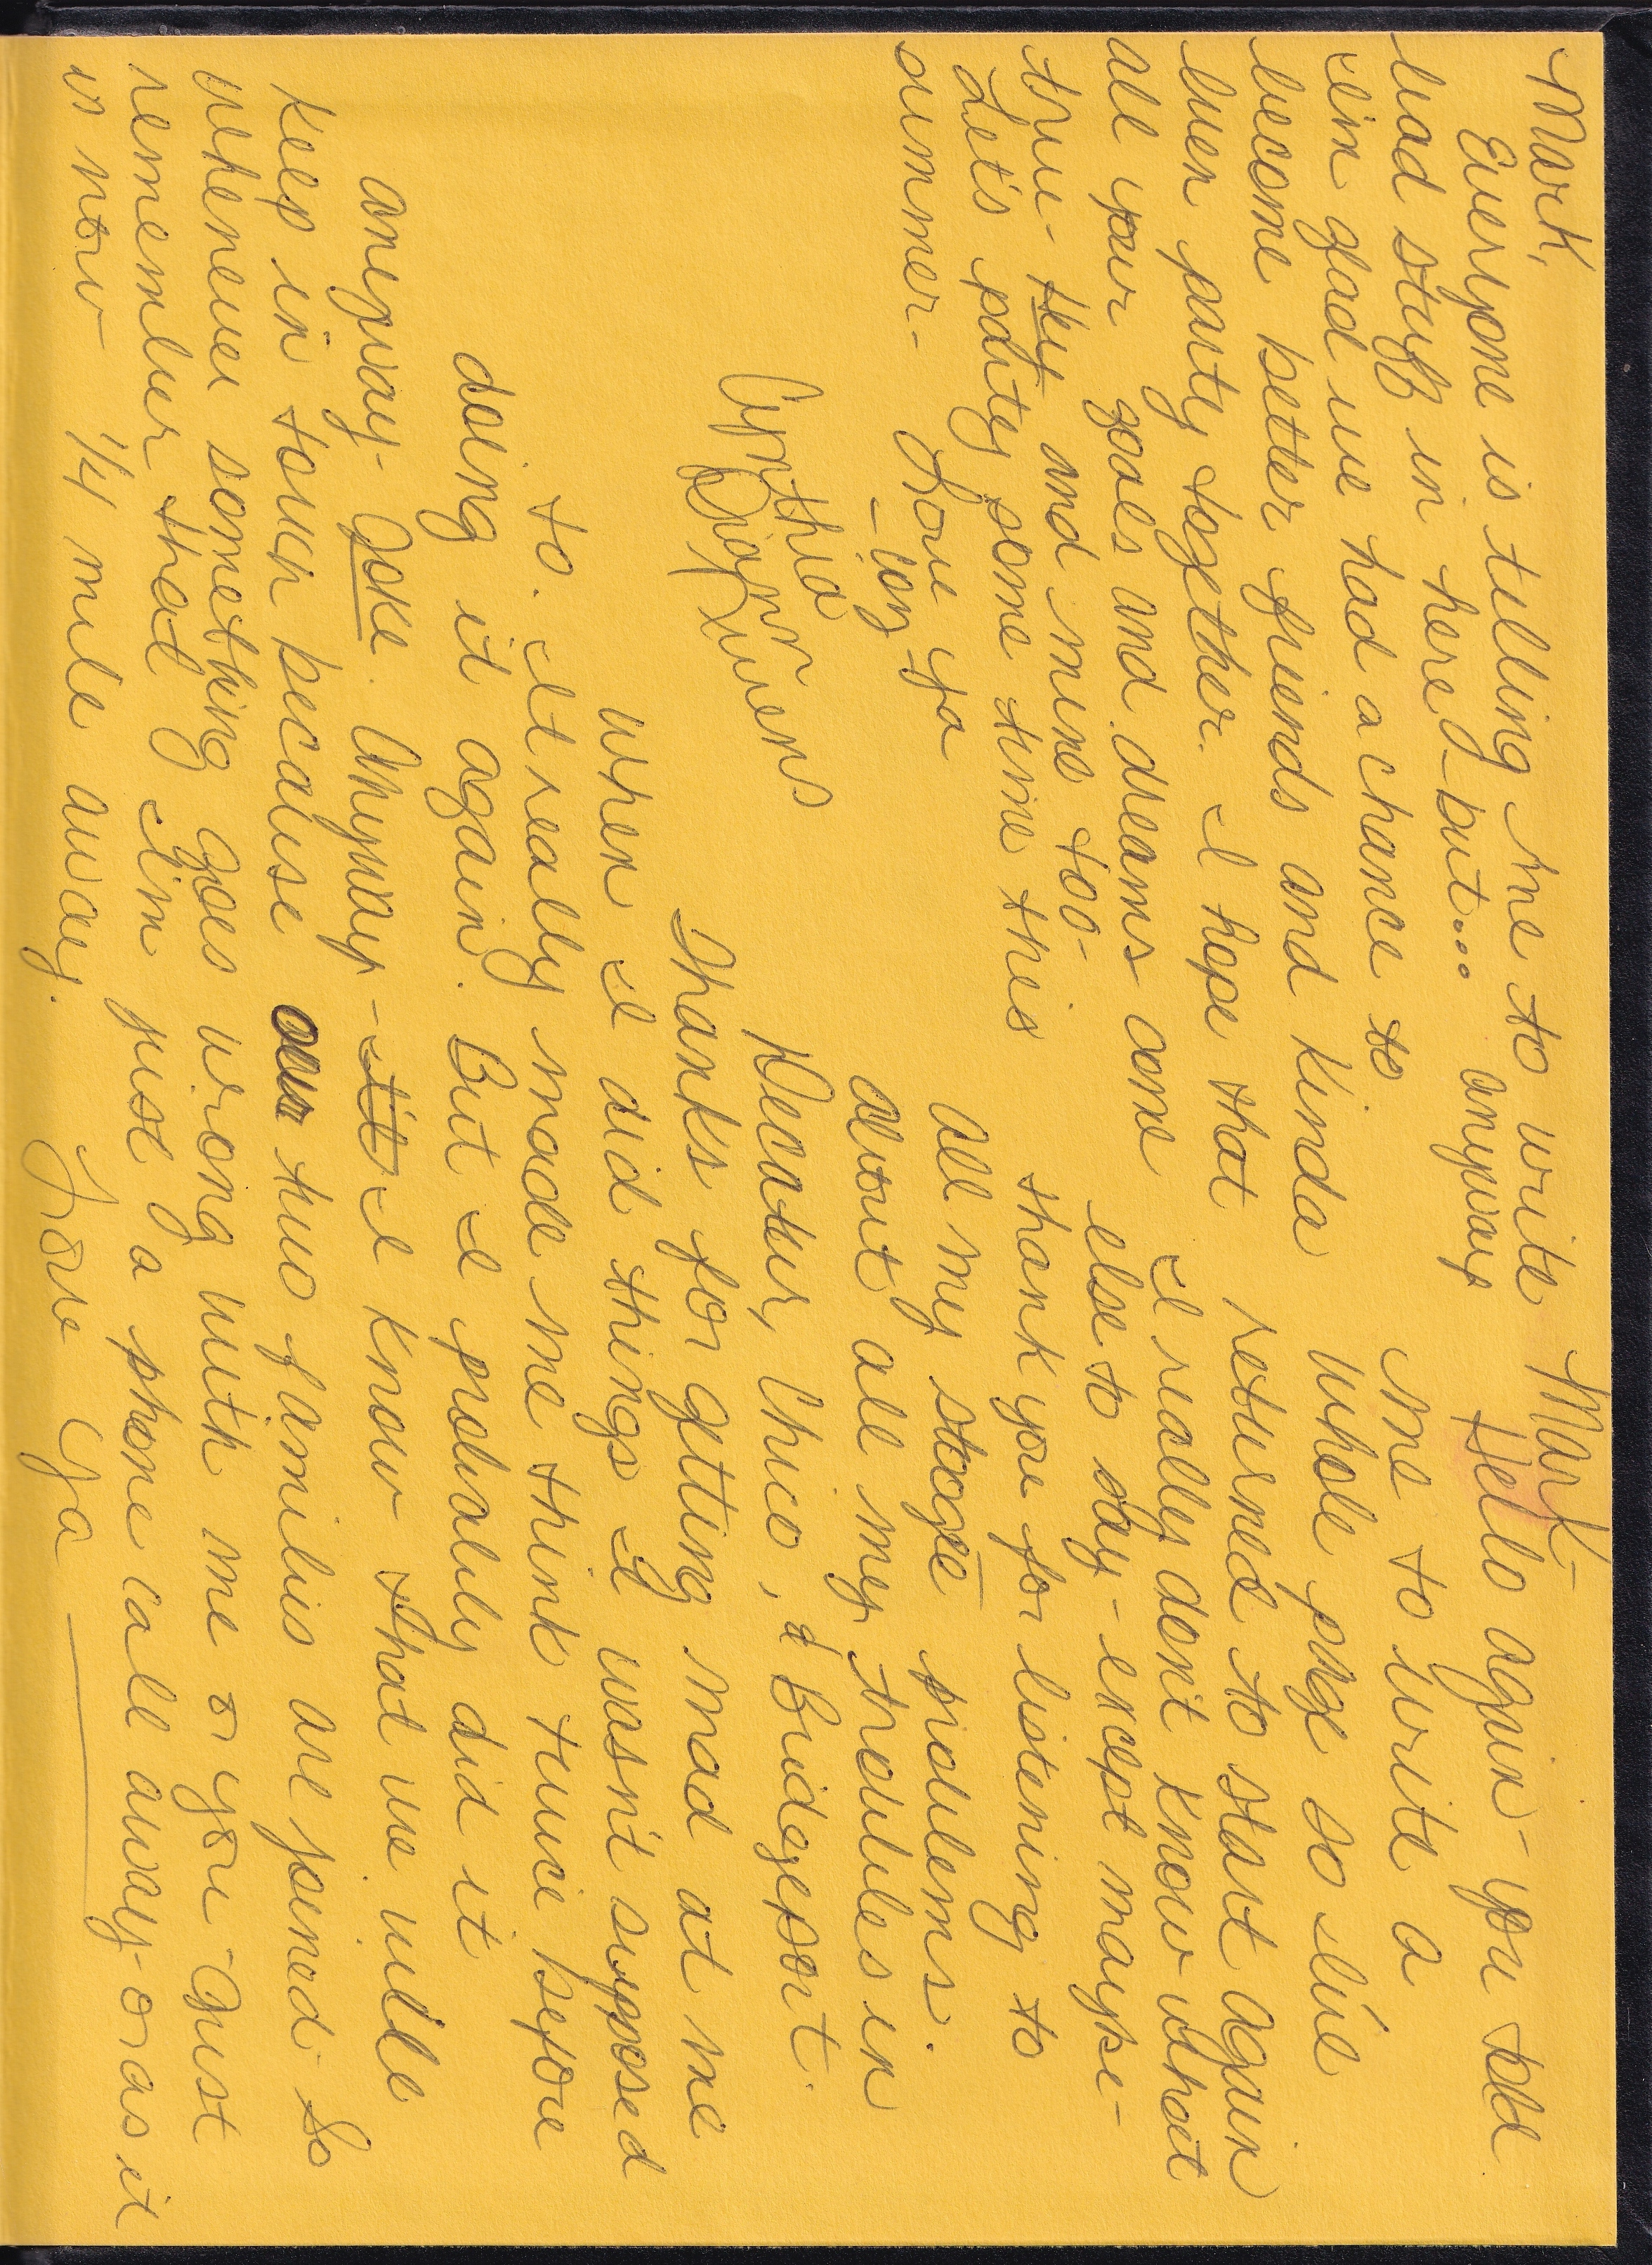 Mark,
Everyone is telling me to write
bad stuff in here - but... anyway
im glad we had a chance to
become better friends and kinda
buen party together. I hope that
all your goals and dreams come
true - they and mine too -
Let's party some time this
summer - Love ya
Cynthia
Mark -
Hello again - you told
me to write a
whole page so I've
returned to start again
I really don't know what
else to say - except maybe -
thank you for listening to
all my stooge problems.
about all my troubles in
Decatur, Chico, & Bridgeport.
Thanks for getting mad at me
when I did things I wasn't suppose d
to. It really made me think twice before
doing it again. But I probably did it
aneyway - Joke. Anyway - it I know that we will
keep in touch because our two familis are joined. So
whenever something goes wrong with me or you Just
remember that I'm just a phone call away - or as it
is now 1/4 mile away.
Love Ya